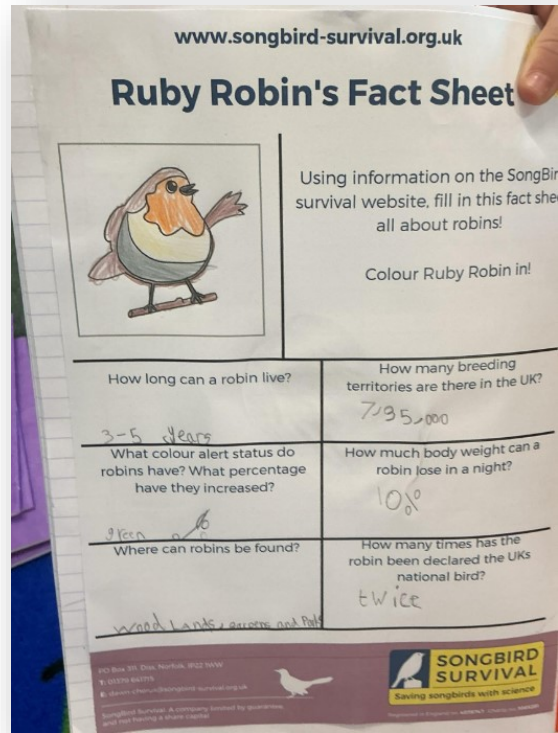 www.songbird-survival.org.uk
Ruby Robin's Fact Sheet
Using information on the SongBir
survival website, fill in this fact shee
all about robins!
Colour Ruby Robin in!
How long can a robin live?
3-5 years
How many breeding
territories are there in the UK?
7,35,000
What colour alert status do
robins have? What percentage
have they increased?
green
How much body weight can a
robin lose in a night?
10%
Where can robins be found?
wood lands, gardens and Parks
How many times has the
robin been declared the UKs
national bird?
twice
PO Box 311, Diss, Norfolk, IP22 1WW
T: 01379 641715
E: dawn-chorus@songbird-survival.org.uk
SongBird Survival. A company limited by guarantee
and not having a share capital
SONGBIRD
SURVIVAL
Saving songbirds with science